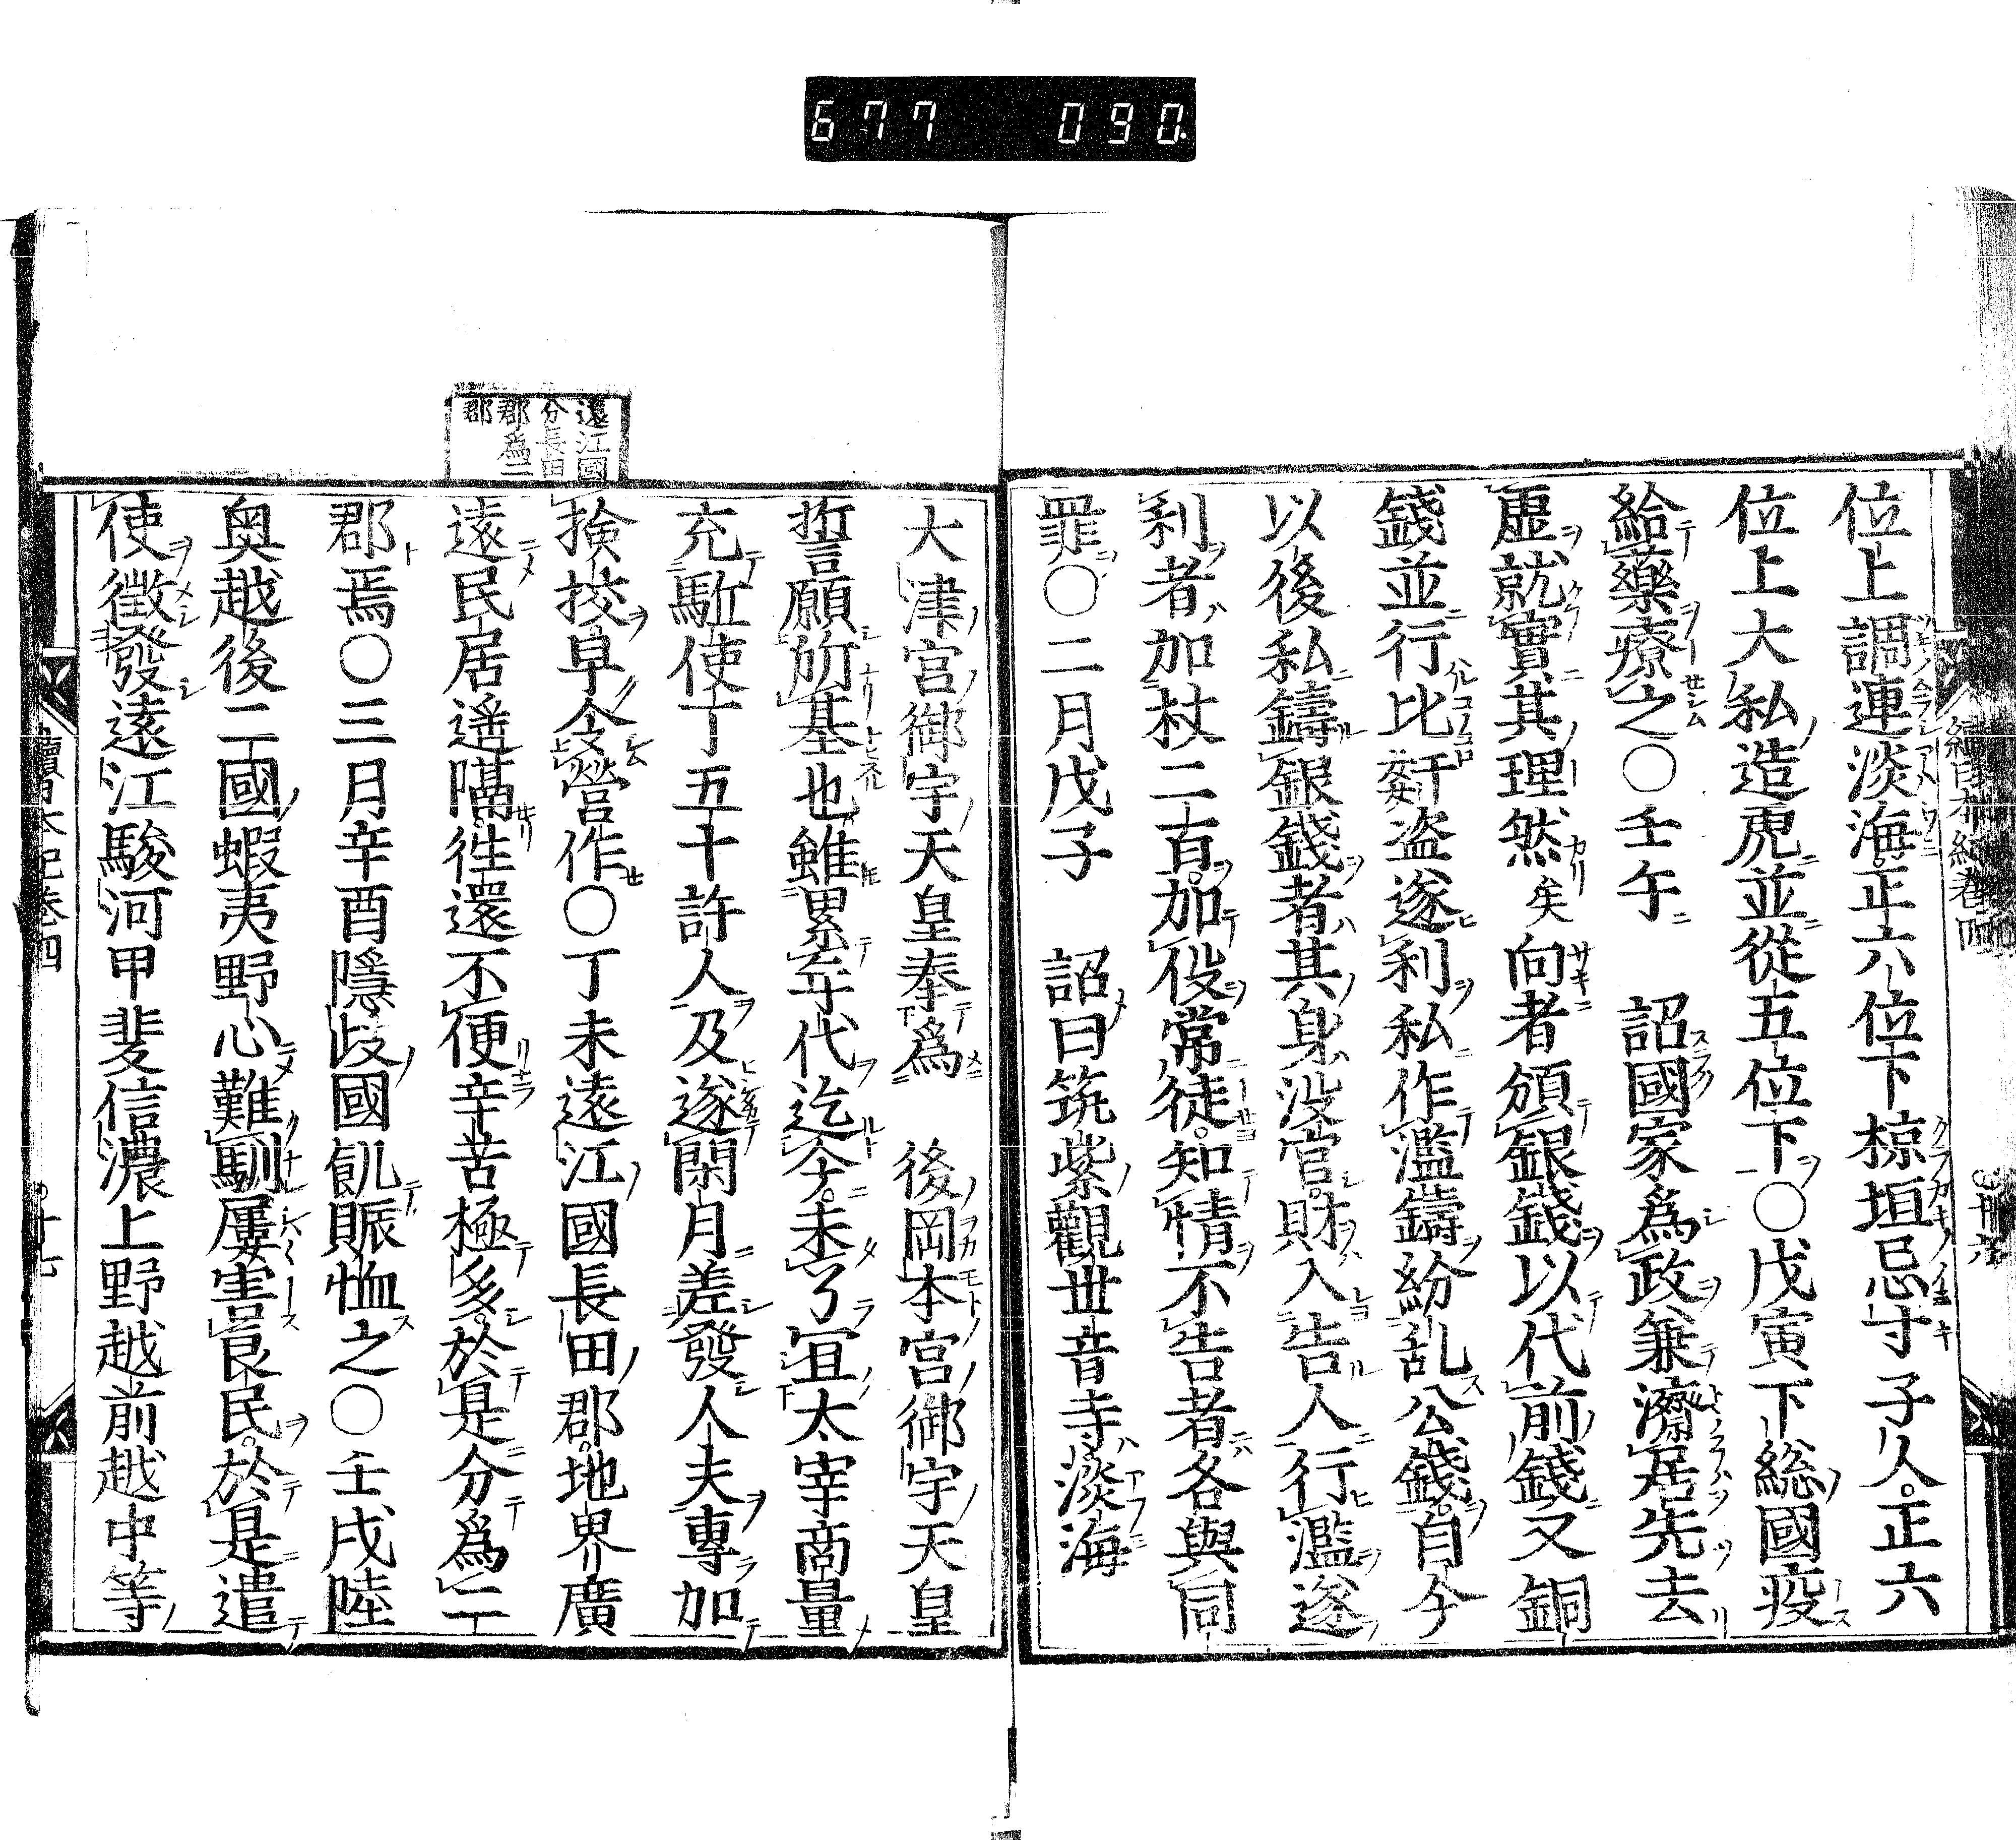 677 090
續日本紀卷四
位上調連淡海。正六位下椋垣忌寸子人。正六
位上大私造虎並從五位下○戊寅下總國疫
給藥療之○壬午 詔國家爲政兼濟居先去
虛就實其理然矣向者頒銀錢以代前錢又銅
錢並行比姧盜遂利私作濫鑄紛乱公錢。自今
以後私鑄銀錢者其身沒官。財入告人行濫遂
利者加杖二百。加役常徒。知情不告者各與同
罪○二月戊子 詔曰筑紫觀世音寺淡海
大津宮御宇天皇奉爲 後岡本宮御宇天皇
誓願所基也雖累年代迄今。未了宜太宰商量
充駈使丁五十許人及遂閑月差發人夫專加
撿挍早令營作○丁未遠江國長田郡。地界廣
遠民居遥隔。往還不便辛苦極多。於是分爲二
郡焉○三月辛酉隱岐國飢賑恤之○壬戌陸
奥越後二國蝦夷野心難馴屢害良民。於是遣
使徵發遠江駿河甲斐信濃上野越前越中等
遠江國
分長田
郡爲二
郡
續日本紀卷四
十七